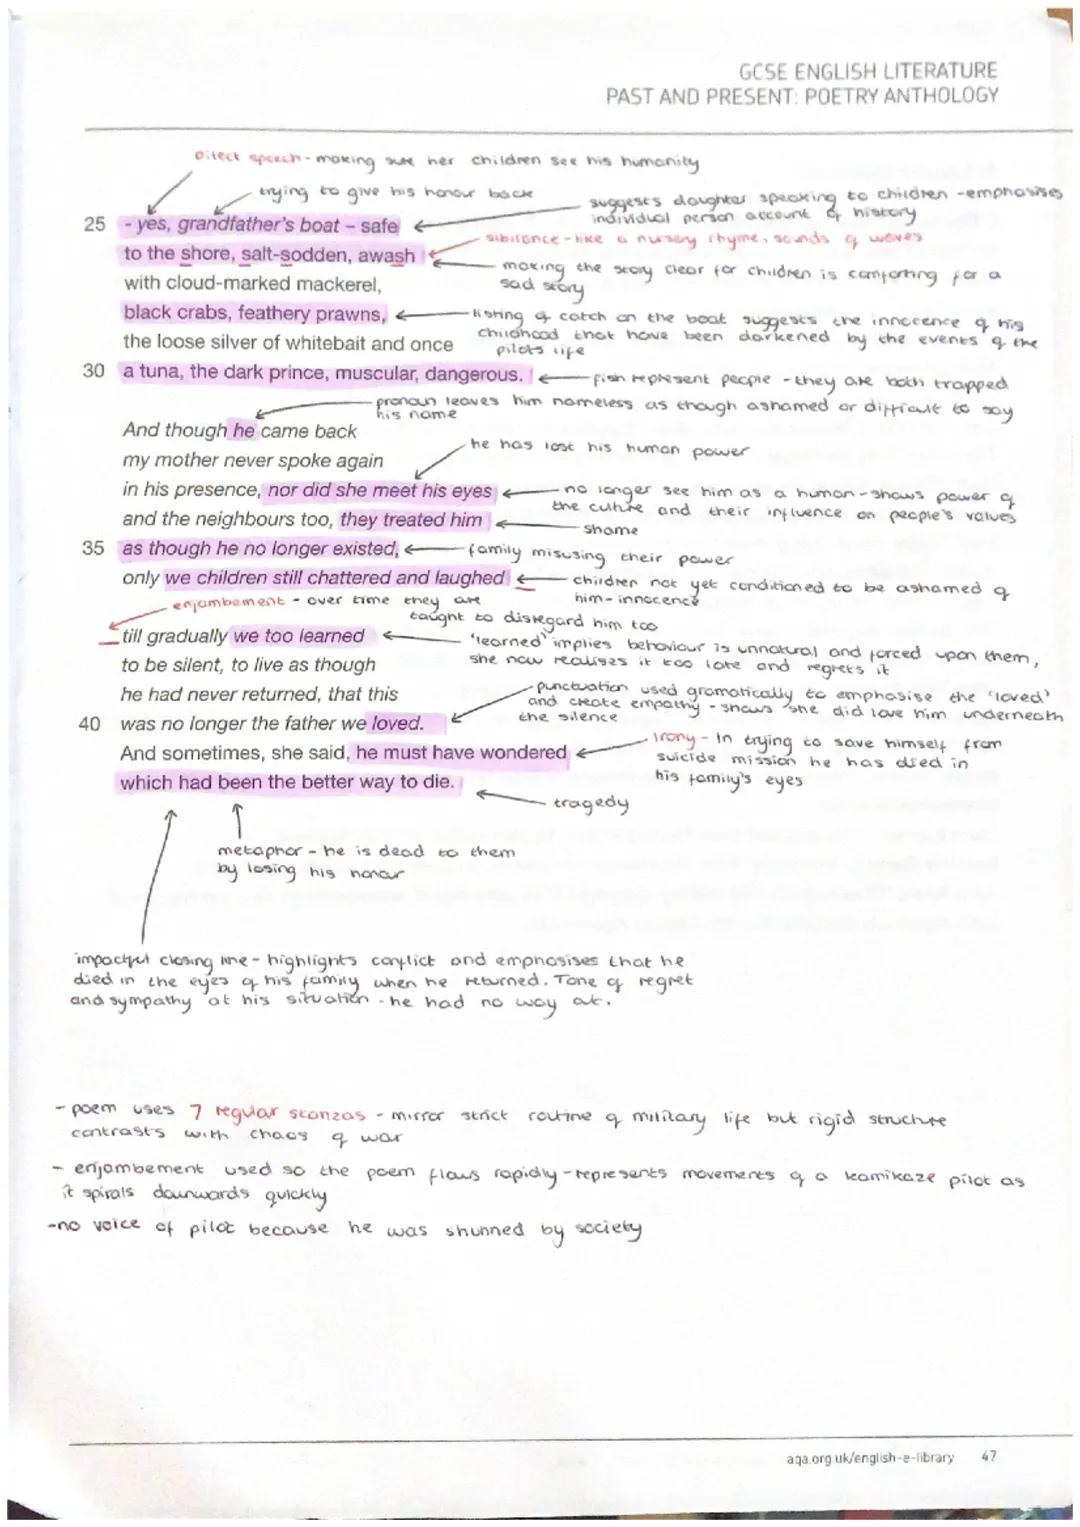 GCSE ENGLISH LITERATURE
PAST AND PRESENT: POETRY ANTHOLOGY
Direct speech - making sure her children see his humanity
trying to give his honour back
suggests daughter speaking to children - emphasises
individual person account of history
25 - yes, grandfather's boat – safe
sibilance - like a nursery rhyme, sounds of waves
to the shore, salt-sodden, awash
making the story clear for children is comforting for a
sad story
with cloud-marked mackerel,
black crabs, feathery prawns,
listing of catch on the boat suggests the innocence of his
childhood that have been darkened by the events of the
pilots life
the loose silver of whitebait and once
30 a tuna, the dark prince, muscular, dangerous.
fish represent people - they are both trapped
pronoun leaves him nameless as though ashamed or difficult to say
his name
And though he came back
he has lost his human power
my mother never spoke again
in his presence, nor did she meet his eyes
no longer see him as a human - shows power of
the culture and their influence on people's values
and the neighbours too, they treated him
shame
35 as though he no longer existed,
family misusing their power
only we children still chattered and laughed
children not yet conditioned to be ashamed of
him - innocence
enjambement - over time they are
taught to disregard him too
till gradually we too learned
'learned' implies behaviour is unnatural and forced upon them,
she now realises it too late and regrets it
to be silent, to live as though
he had never returned, that this
punctuation used gramatically to emphasise the 'loved'
and create empathy - shows she did love him underneath
the silence
40 was no longer the father we loved.
Irony - In trying to save himself from
suicide mission he has died in
his family's eyes
And sometimes, she said, he must have wondered
which had been the better way to die.
tragedy
metaphor - he is dead to them
by losing his honour
impactful closing line - highlights conflict and emphasises that he
died in the eyes of his family when he returned. Tone of regret
and sympathy at his situation - he had no way out.
- poem uses 7 regular stanzas - mirror strict routine of military life but rigid structure
contrasts with chaos of war
- enjambement used so the poem flows rapidly - represents movements of a kamikaze pilot as
it spirals downwards quickly
- no voice of pilot because he was shunned by society
aqa.org.uk/english-e-library 47